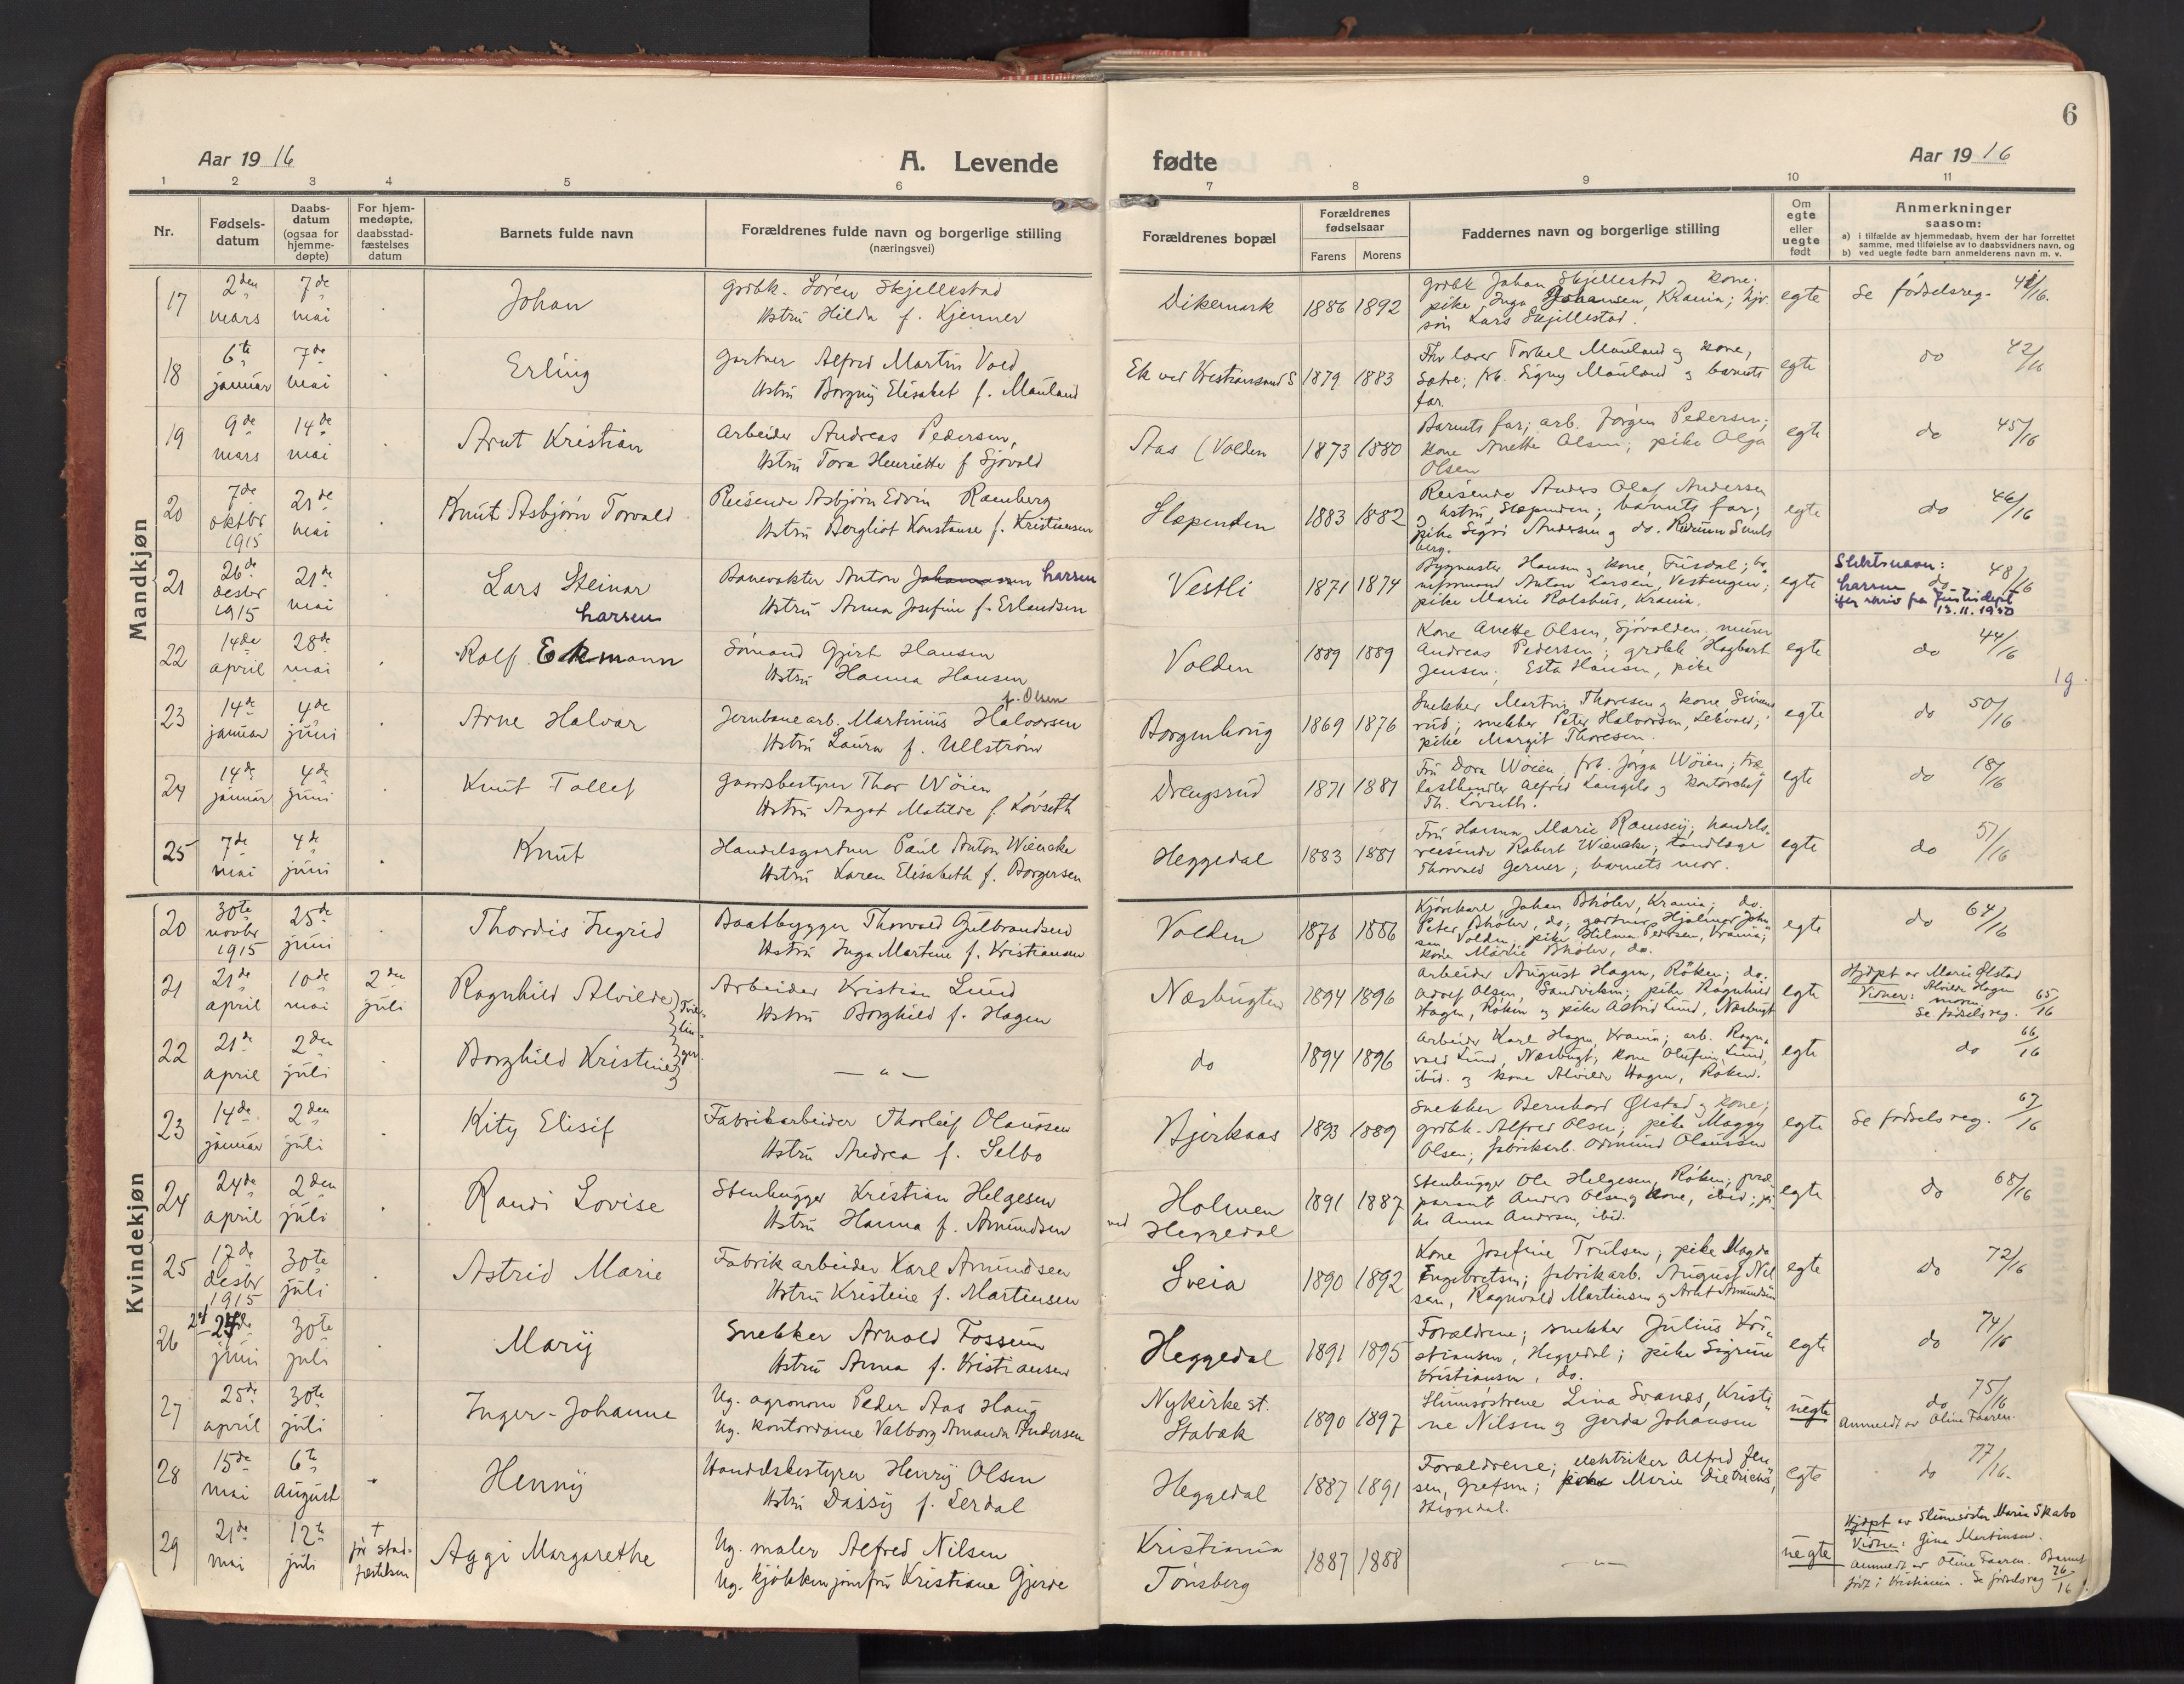 6
Aar 1916
A. Levende
fødte
Aar 1916
1 2 3 4 5 6 7 8 9 10 11
Nr.
Fødsels-
datum
Daabs-
datum
(ogsaa for
hjemme-
døpte)
For hjem-
medøpte,
daabsstad-
fæstelses
datum
Barnets fulde navn
Forældrenes fulde navn og borgerlige stilling
(næringsvei)
Forældrenes bopæl
Forældrenes
fødselsaar
Farens
Morens
Faddernes navn og borgerlige stilling
Om
egte
eller
uegte
født
Anmerkninger
saasom:
a) i tilfælde av hjemmedaab, hvem der har forrettet
samme, med tilføielse av to daabsvidners navn, og
b) ved uegte fødte barn anmelderens navn m. v.
Mandkjøn
17
2den
mars
7de
mai
Johan
grdbk. Sören Skjellestad
Hstrü Hilda f. Kjenner
Dikemark
1886 1892
grdbk Johan Skjellestad og kone;
pike Inga Johansen, Krania; hjv.
sön Lars Skjellestad.
egte
Se födselsreg. 41/16.
18
6te
januar
7de
mai
Erling
gartner Alfred Martin Vold
Hstrü Borgny Elisabet f. Mauland
Ek ved Kristiansand S
1879 1883
Fhv lærer Torkel Mauland og kone,
Satre; frk. Signy Mauland og barnets
far.
egte
do 42/16
19
9de
mars
14de
mai
Arnt Kristian
Arbeider Andreas Pedersen,
Hstrü Tora Henriette f Sjövold
Aas (Volden
1873 1880
Barnets far; arb. Jörgen Pedersen;
kone Anette Olsen; pike Olga
Olsen
egte
do 45/16
20
7de
oktbr
1915
21de
mai
Knut Asbjörn Torvald
Reisende Asbjörn Edvin Ramberg
Hstrü Bergliot Konstanse f. Kristiansen
Slependen
1883 1882
Reisende Anders Olaf Andersen
og hstrü, Slependen; barnets far;
pike Sigri Andersen og do.
berg.
egte
do 46/16
21
26de
desbr
1915
21de
mai
Lars Steinar
Larsen
Banevokter Anton Johannesen Larsen
Hstrü Anna Josefine f. Erlandsen
Vestli
1871 1874
Bygmester Hansen og kone, Füsdal;
Anton Larsen, Vestengen;
pike Marie Rolshus, Krania.
egte
Slektsnavn:
Larsen do 48/16
ifer skriv fra Justisdept
13.11.1950
22
14de
april
28de
mai
Rolf Eckmann
Sömand Gjert Hansen
Hstrü Hanna Hansen
f. Olsen
Volden
1889 1889
Kone Anette Olsen, Sjövolden; murer
Andreas Pedersen; grdbk Hagbart
Jensen; Esta Hansen, pike
egte
do 44/16
19.
23
14de
januar
4de
juni
Arne Halvar
Jernbanearb. Martinius Halvorsen
Hstrü Laura f. Ullström
Borgenhoug
1869 1876
Snekker Martin Thoresen og kone,
rud; snekker Peter Halvorsen,
pike Margit Thoresen.
egte
do 50/16
24
14de
januar
4de
juni
Knut Tollef
Gaardsbestyrer Thor Wöien
Hstrü Aagot Matilde f. Lövseth
Drengsrud
1871 1881
Frü Dora Wöien, frk. Jörga Wöien; træ-
lasthandler Alfred Langelo og kontorchef
Th. Lövseth.
egte
do 18/16
25
7de
mai
4de
juni
Knut
Handelsgartner Paul Anton Wiencke
Hstrü Karen Elisabeth f. Borgersen
Heggedal
1883 1881
Frü Hanna Marie Ramsey; handels-
reisende Robert Wiencke; tandlæge
Thorvald Gerner; barnets mor.
egte
do 51/16
Kvindekjøn
20
30te
novbr
1915
25de
juni
Thordis Ingrid
Baatbygger Thorvald Gulbrandsen
Hstrü Inga Martine f. Kristiansen
Volden
1876 1886
Kjörekarl Johan Bhöler, Krania; do.
Peter Bhöler, do; gartner Hjalmar John-
sen, Volden; pike Hilma Pedersen, Krania;
kone Marie Bhöler, do.
egte
do 64/16
21
21de
april
10de
mai
2den
juli
Ragnhild Alvilde
Tvil-
lin-
ger.
Arbeider Kristian Lund
Hstrü Borghild f. Hagen
Næsbugten
1894 1896
Arbeider August Hagen, Röken; do.
Adolf Olsen, Sandviken; pike Ragnhild
Hagen, Röken og pike Astrid Lund, Næsbugt
egte
Hjdpt av Marie Ølstad
Vidner: Alvilde Hagen
moren.
Se fødselsreg. 65/16
22
21de
april
2den
juli
Borghild Kristine
— " —
do
1894 1896
Arbeider Karl Hagen, Krania; arb. Ragn-
vald Lund, Næsbugt; kone Olufine Lund,
ibid. og kone Alvilde Hagen, Röken.
egte
do 66/16
23
14de
januar
2den
juli
Kity Elisif
Fabrikarbeider Thorleif Olaussen
Hstrü Andrea f. Selbo
Bjerkaas
1893 1889
Snekker Bernhard Ølstad og kone;
grdbk. Alfred Olsen; pike Maggy
Olsen; fabrikarb. Odmund Olaussen
egte
Se fødselsreg. 67/16
24
24de
april
2den
juli
Randi Lovise
Stenhugger Kristian Helgesen
Hstrü Hanna f. Amundsen
Holmen
ved Heggedal
1891 1887
Stenhugger Ole Helgesen, Röken; præ-
parant Anders Olsen og kone, ibid; pi-
ke Anna Andersen, ibid.
egte
do 68/16
25
17de
desbr
1915
30te
juli
Astrid Marie
Fabrikarbeider Karl Amundsen
Hstrü Kristine f. Martinsen
Sveia
1890 1892
Kone Josefine Trulsen; pike Magda
Engebretsen; fabrikarb. August Nil-
sen, Ragnvald Martinsen og Arnt Amundsen
egte
do 72/16
26
24de
juni
30te
juli
Mary
Snekker Arnold Fossum
Hstrü Anna f. Kristiansen
Heggedal
1891 1895
Forældrene; snekker Julius Kri-
stiansen, Heggedal; pike Sigrun
Kristiansen, do.
egte
do 74/16
27
25de
april
30te
juli
Inger-Johanne
Ug. agronom Peder Aas Haug
Ug. kontordame Valborg Amanda Andersen
Nykirke st.
Stabæk
1890 1897
Slumsöstrene Lina Svanæs, Kristi-
ne Nilsen og Gerda Johansen
uegte
do 75/16
Anmeldt av Oline Faaren.
28
15de
mai
6te
August
Henny
Handelsbestyrer Henry Olsen
Hstrü Daisy f. Lerdal
Heggedal
1887 1891
Forældrene; elektriker Alfred Jen-
sen, Grefsen; pike Marie Dietrichs,
Heggedal.
egte
do 77/16.
29
21de
mai
12te
juli
+
før stad-
fæstelsen
Aggi Margarethe
Ug. maler Alfred Nilsen
Ug. kjökkenjomfru Kristiane Gjerde
Kristiania
Tönsberg
1887 1888
— " —
uegte
Hjdpt av Slumsöster Maria Skabo
Vidne: Gina Martinsen.
Anmeldt av Oline Faaren. Barnet
født i Kristiania. Se fødselsreg 76/16.